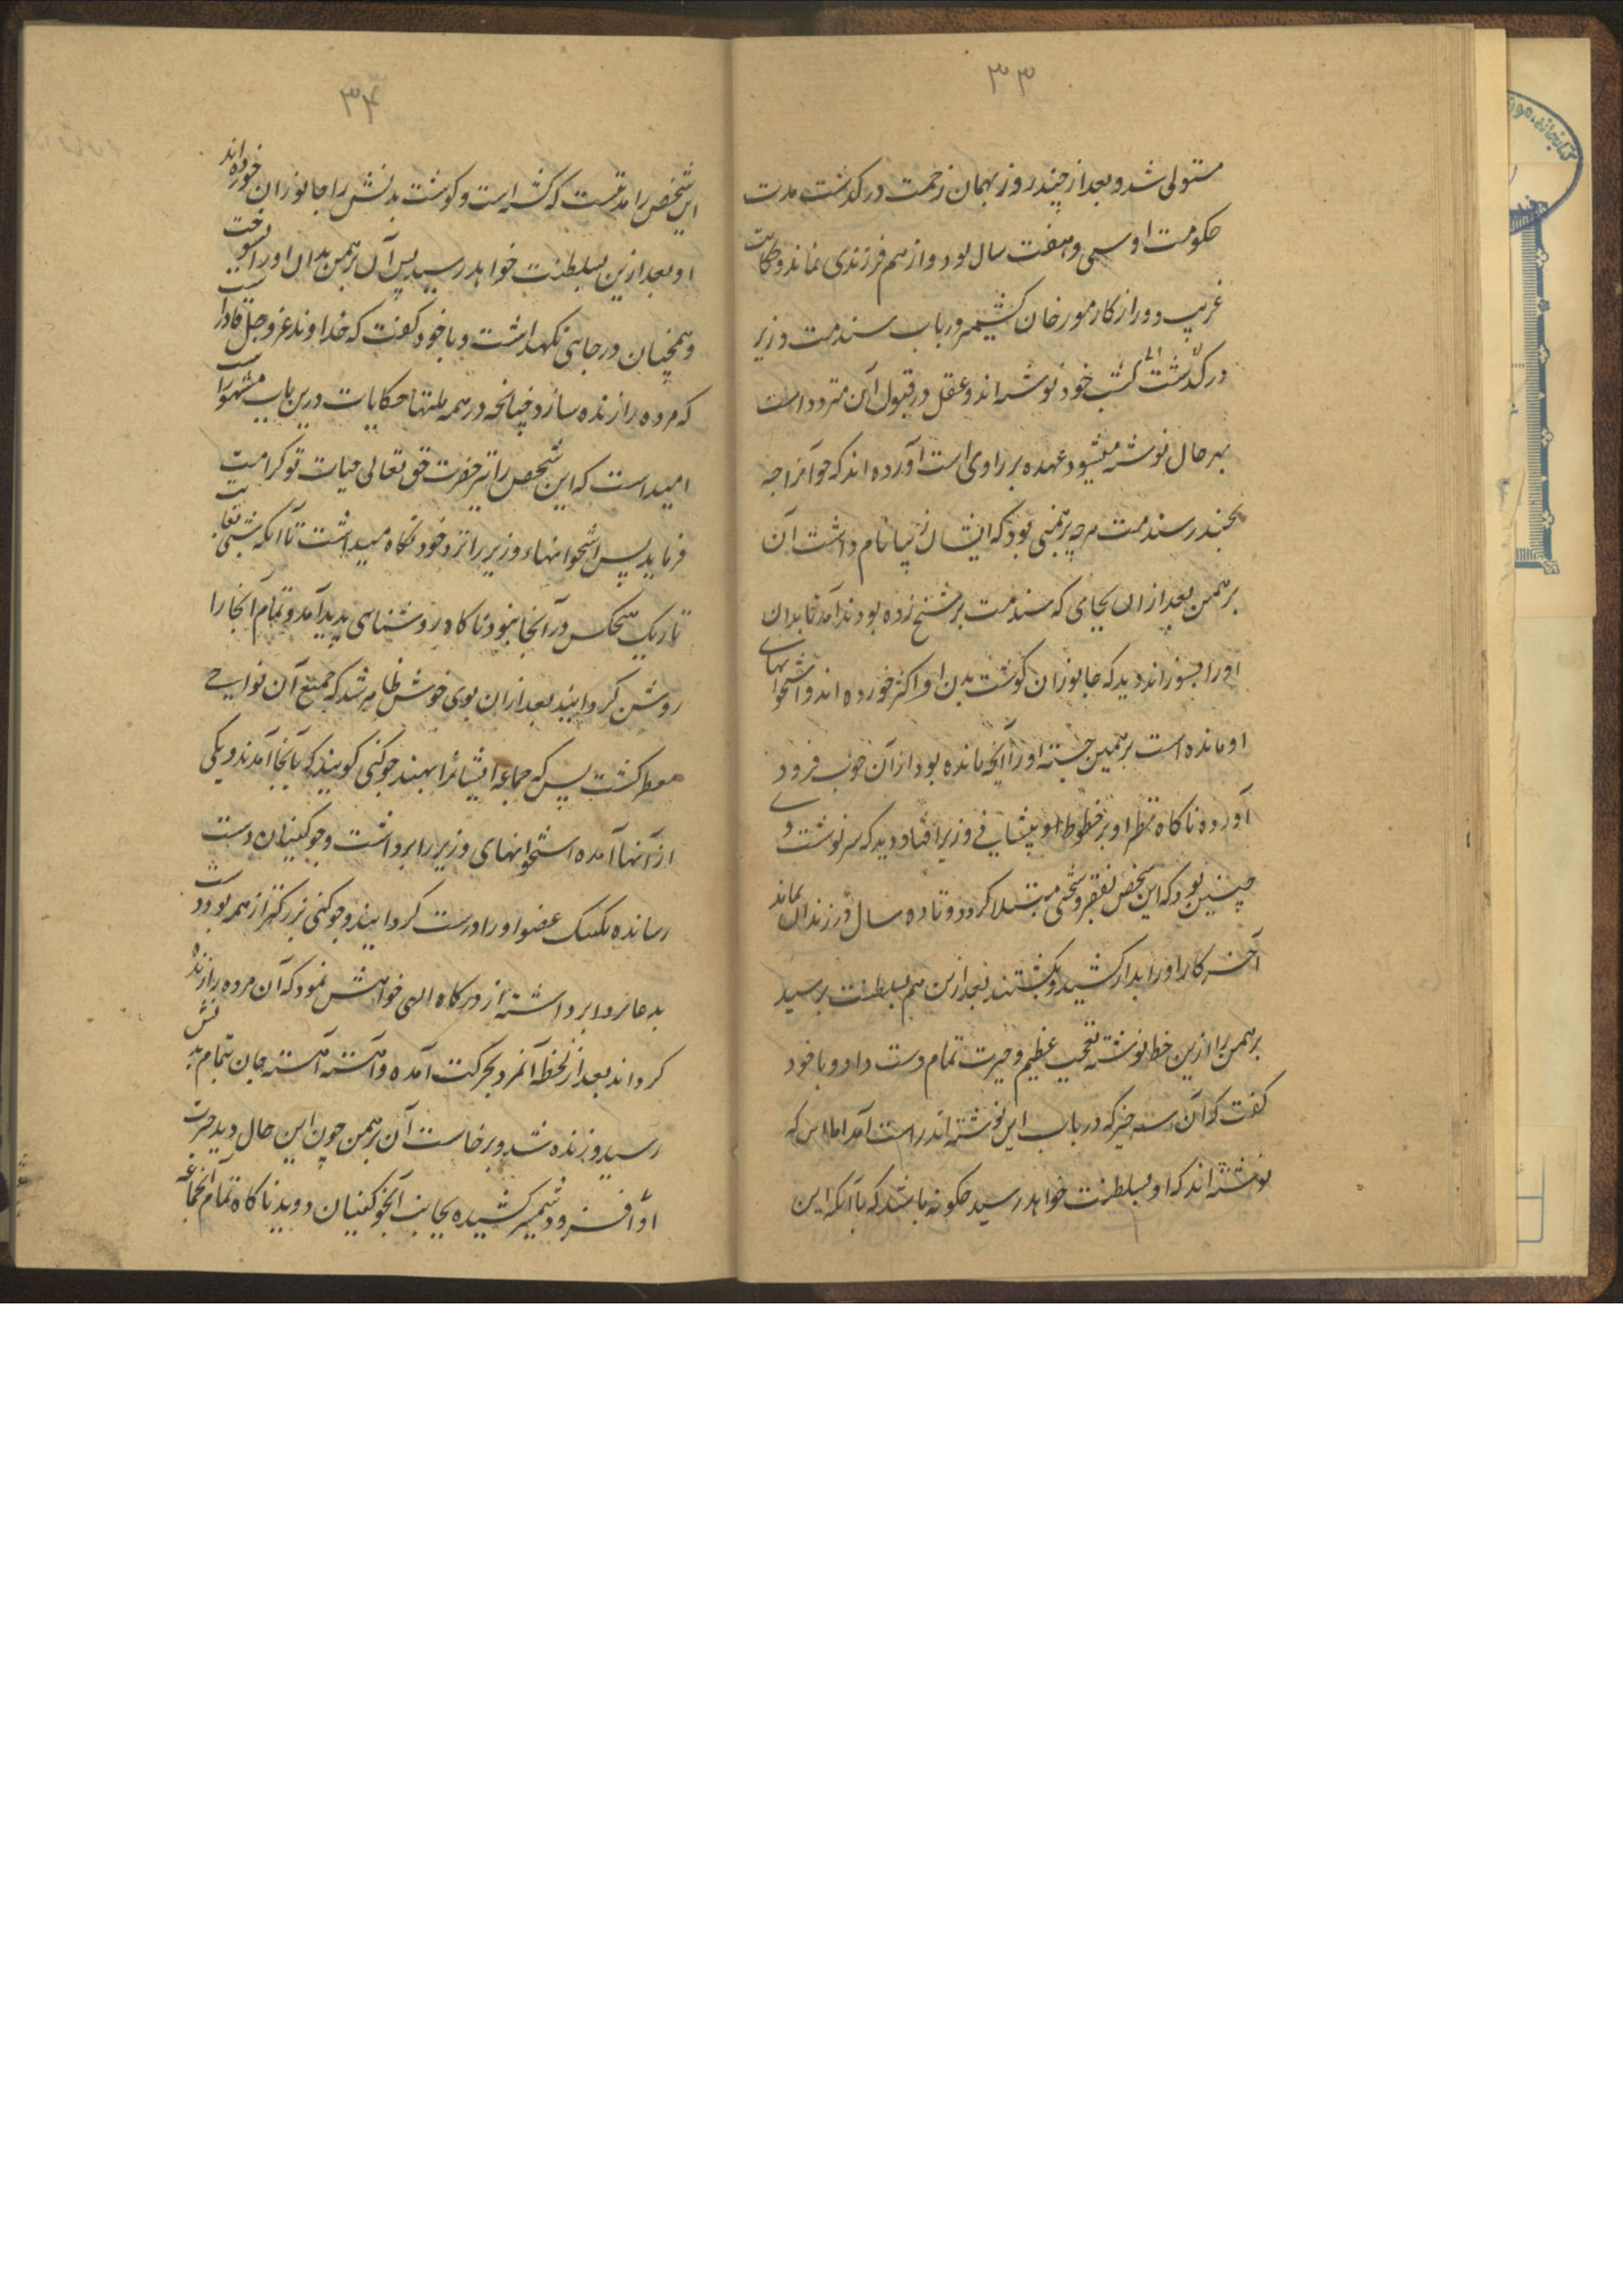 ۳۳
مستولی شد و بعد از چند روز بهمان زحمت درگذشت مدت
حکومت او سی و هفت سال بود و از هم فرزندی نماند و حکایت
غریب و دور از کار مورخان کشیمر در باب سندمت وزیر
در کتب خود نوشته اند و عقل در قبول آن متردد است
بهر حال نوشته میشود عهده بر راوی است آورده اند که
سندمت برهمنی بود که ایشان نام داشت آن
برهمن بعد از ان بجای که سندمت بر میخ زده بودند آمد تا بدان
او را بسوزاند دید که جانوران کوشت بدن او اکثر خورده اند و استخوانهای
او مانده است برهمن جسته او را آنچه مانده بود از آن چوب فرود
آورده ناکاه نظر او بر خطوط پیشانی وزیر افتاد دید که سرنوشت وی
چنین بود که این شخص بفقر و سختی مبتلا کردد و تا ده سال در زندان بماند
آخر کار او را بدار کشیده بکشتند بعد ازین هم بسلطنت برسید
برهمن را ازین خط نوشته تعجب عظیم و حیرت تمام دست داد و با خود
کفت که آن سه چیز که در باب این نوشته اند راست آمد اما این که
نوشته اند که او بسلطنت خواهد رسید چکونه باشد که با آنکه این
۳۴
این شخص را مدتیست که کشته است و کوشت بدنش را جانوران خورده اند
او بعد ازین بسلطنت خواهد رسید پس آن برهمن بدان او را نسوخت
و همچنان در جایی نکهداشت و با خود کفت که خداوند عز و جل قادر است
که مرده را زنده سازد چنانچه در همه ملتها حکایات درین باب مشهور است
امید است که این شخص را نیز حضرت حق تعالی حیات تو کرامت
فرماید پس استخوانهاء وزیر را نزد خود نکاه میداشت تا آنکه شبی بغایت
تاریک هیچکس در آنجا نبود ناکاه روشنای پدید آمد و تمام آنجا را
روشن کردانید بعد از ان بوی خوش ظاهر شد که جمیع آن نواحی
معطر کشت پس که جماعه ایشانرا بهند جوکنی کویند که بآنجا آمدند و یکی
از آنها آمده استخوانهای وزیر را برداشت و جوکنیان دست
رسانده یک یک عضو او را درست کردانیدند و جوکنی بزرکتر از همه بود دست
بدعا برداشته از درکاه الهی خواهش نمود که آن مرده را زنده
کرداند بعد از لحظه آنمرد بحرکت آمده و آهسته آهسته جان بتمام بدنش
رسید و زنده شد و برخاست آن برهمن چون این حال دید حیرت
او افزود شمشیر کشیده بجانب آنجوکنیان دوید ناکاه تمام آنجماعه